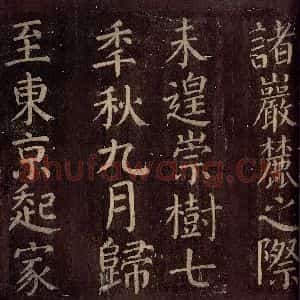 諸巖麓之際
未遑崇樹七
秊秋九月歸
至東京起家
shufawang.cn